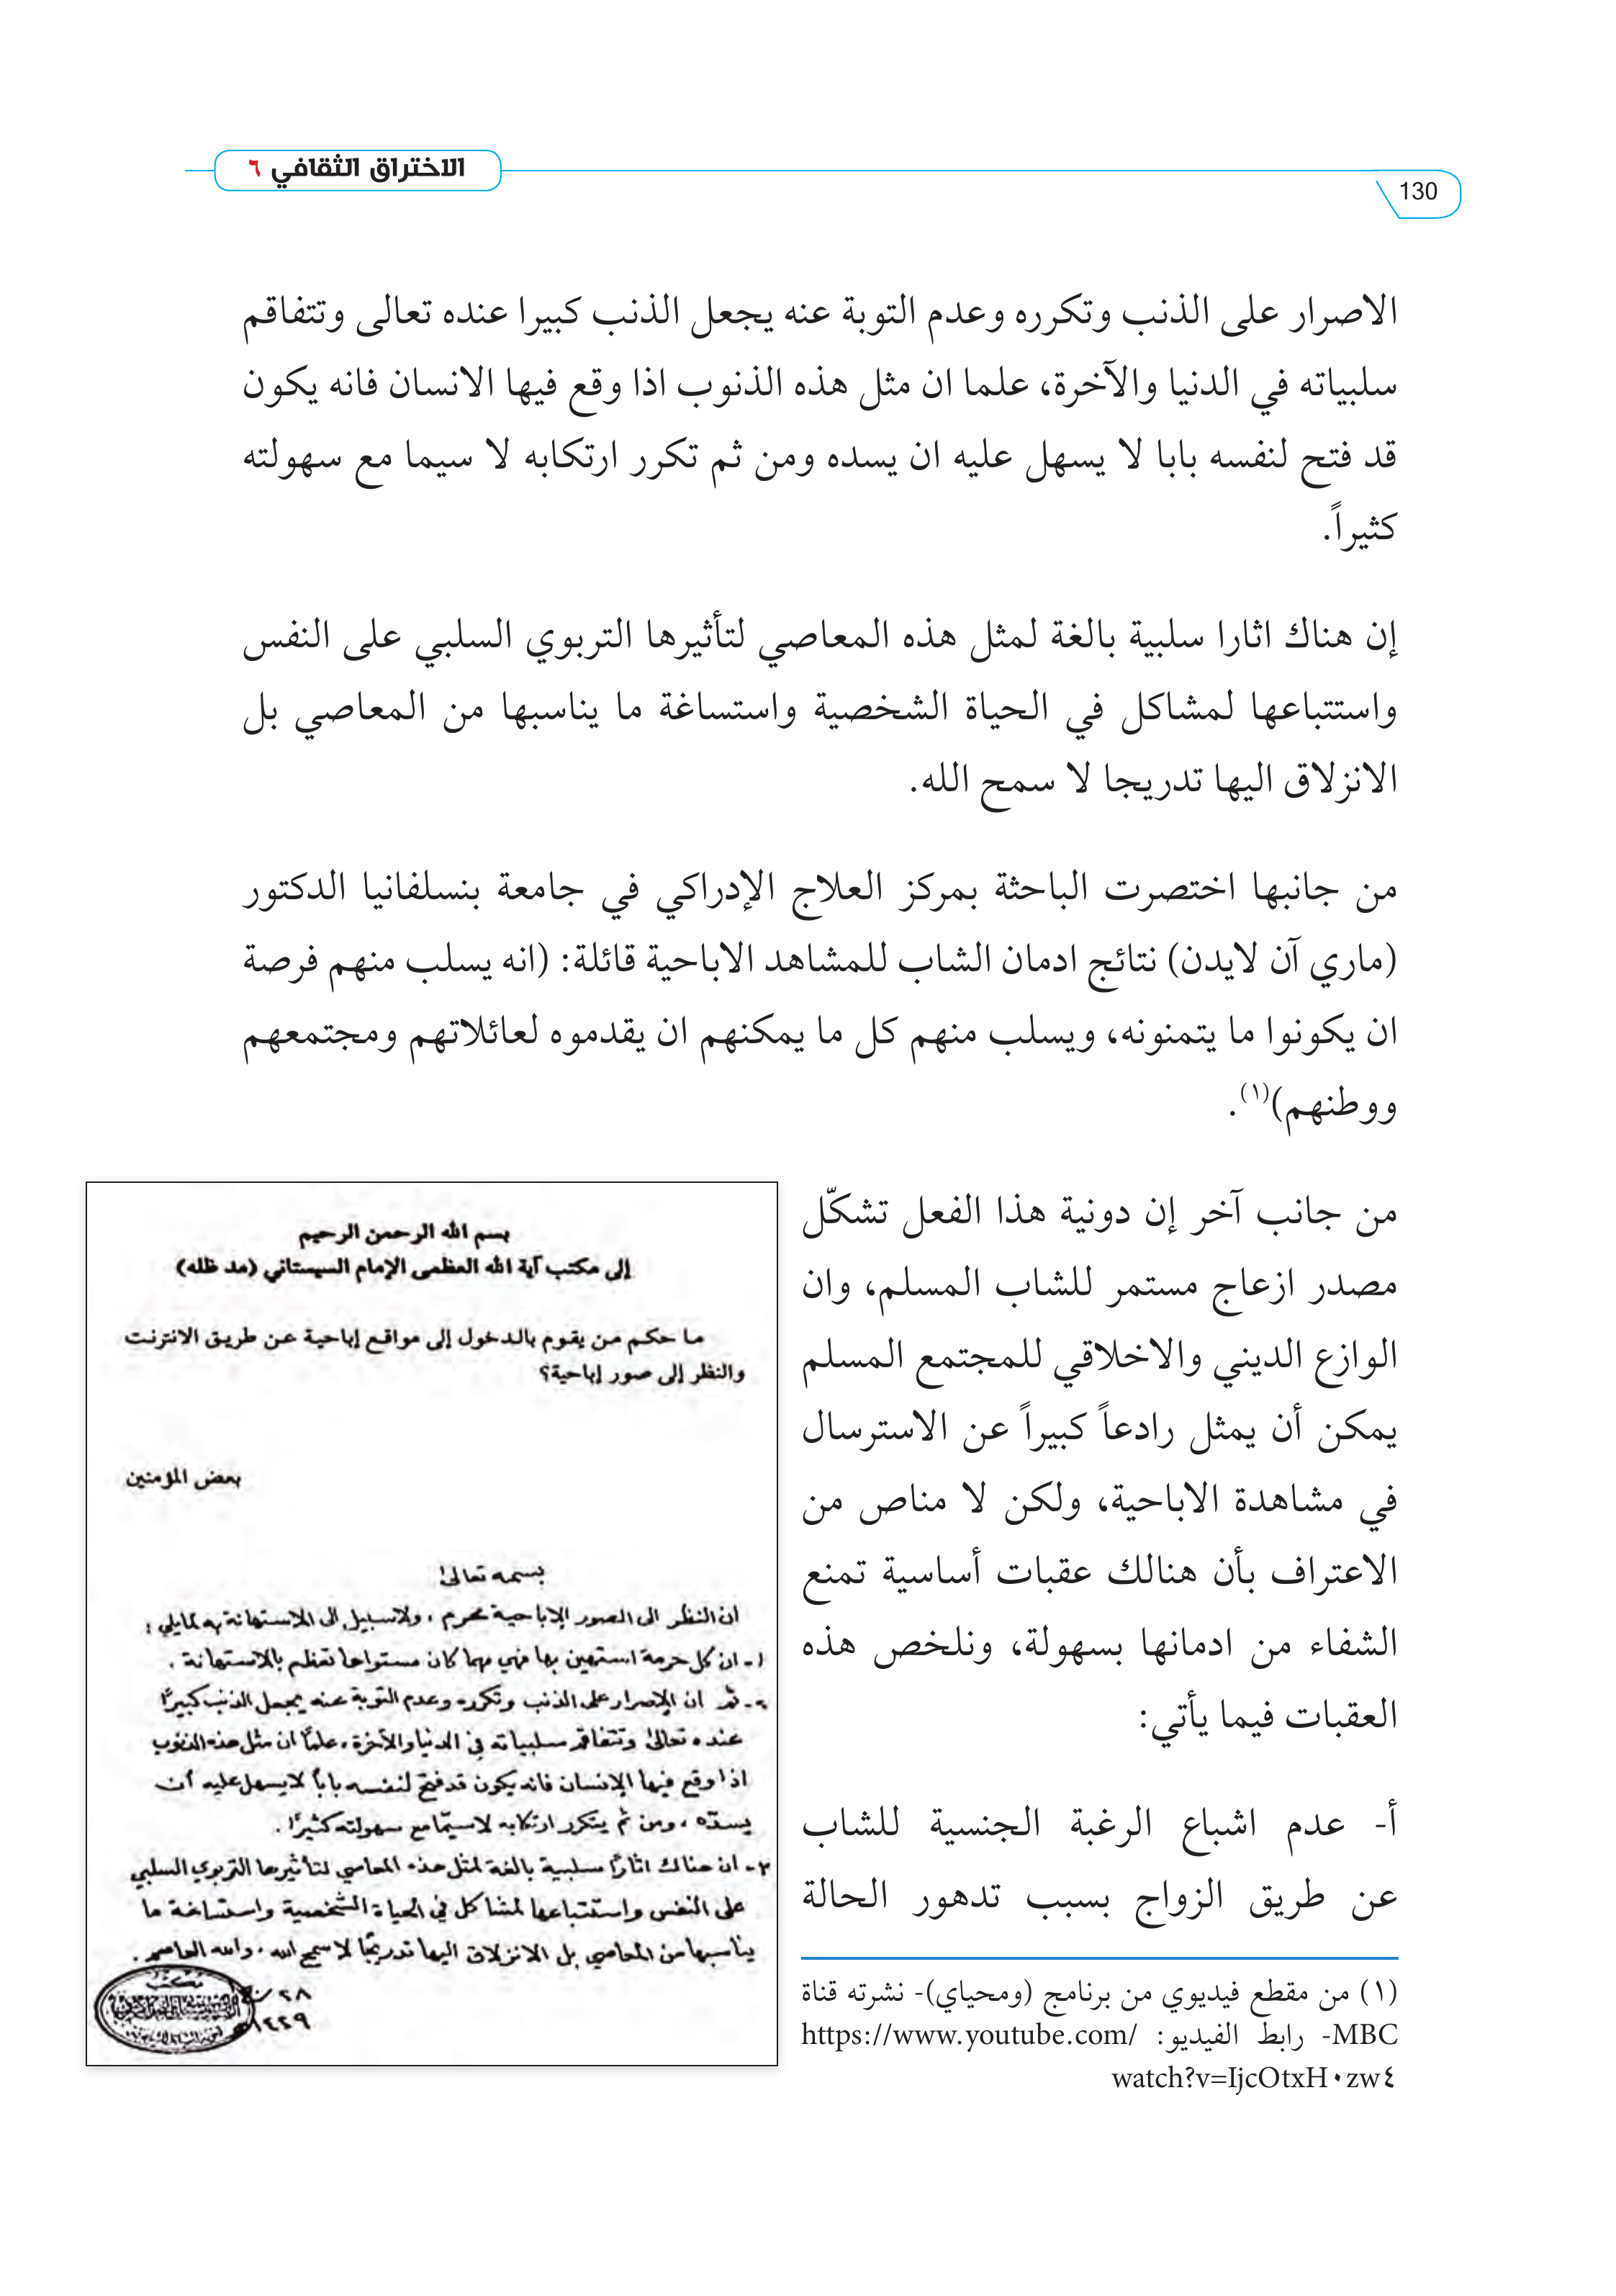 130
الاختراق الثقافي ٦
الاصرار على الذنب وتكرره وعدم التوبة عنه يجعل الذنب كبيرا عنده تعالى وتتفاقم
سلبياته في الدنيا والآخرة، علما ان مثل هذه الذنوب اذا وقع فيها الانسان فانه يكون
قد فتح لنفسه بابا لا يسهل عليه ان يسده ومن ثم تكرر ارتكابه لا سيما مع سهولته
كثيراً.
إن هناك اثارا سلبية بالغة لمثل هذه المعاصي لتأثيرها التربوي السلبي على النفس
واستتباعها لمشاكل في الحياة الشخصية واستساغة ما يناسبها من المعاصي بل
الانزلاق اليها تدريجا لا سمح الله.
من جانبها اختصرت الباحثة بمركز العلاج الإدراكي في جامعة بنسلفانيا الدكتور
(ماري آن لايدن) نتائج ادمان الشاب للمشاهد الاباحية قائلة: (انه يسلب منهم فرصة
ان يكونوا ما يتمنونه، ويسلب منهم كل ما يمكنهم ان يقدموه لعائلاتهم ومجتمعهم
ووطنهم)(١).
من جانب آخر إن دونية هذا الفعل تشكّل
مصدر ازعاج مستمر للشاب المسلم، وان
الوازع الديني والاخلاقي للمجتمع المسلم
يمكن أن يمثل رادعاً كبيراً عن الاسترسال
في مشاهدة الاباحية، ولكن لا مناص من
الاعتراف بأن هنالك عقبات أساسية تمنع
الشفاء من ادمانها بسهولة، ونلخص هذه
العقبات فيما يأتي:
أ- عدم اشباع الرغبة الجنسية للشاب
عن طريق الزواج بسبب تدهور الحالة
بسم الله الرحمن الرحيم
إلى مكتب آية الله العظمى الإمام السيستاني (مد ظله)
ما حكم من يقوم بالدخول إلى مواقع إباحية عن طريق الانترنت
والنظر إلى صور إباحية؟
بعض المؤمنين
بسمه تعالى
ان النظر الى الصور الإباحية محرم، ولا سبيل الى الاستهانة به لما يلي:
١- ان كل حرمة استهين بها فهي مهما كان مستواها تعظم بالاستهانة.
٢- ثم ان الإصرار على الذنب وتكرره وعدم التوبة عنه يجعل الذنب كبيرًا
عنده تعالى وتتفاقم سلبياته في الدنيا والآخرة، علمًا ان مثل هذه الذنوب
اذا وقع فيها الإنسان فانه يكون قد فتح لنفسه بابًا لا يسهل عليه أن
يسدّه، ومن ثم يتكرر ارتكابه لا سيّما مع سهولته كثيرًا.
٣- ان هناك اثارًا سلبية بالغة لمثل هذه المعاصي لتأثيرها التربوي السلبي
على النفس واستتباعها لمشاكل في الحياة الشخصية واستساغة ما
يناسبها من المعاصي بل الانزلاق اليها تدريجًا لا سمح الله، والله العاصم.
٢٨
١٤٢٩
مكتب
(١) من مقطع فيديوي من برنامج (ومحياي)- نشرته قناة
MBC- رابط الفيديو: https://www.youtube.com/
watch?v=IjcOtxH٠zw٤